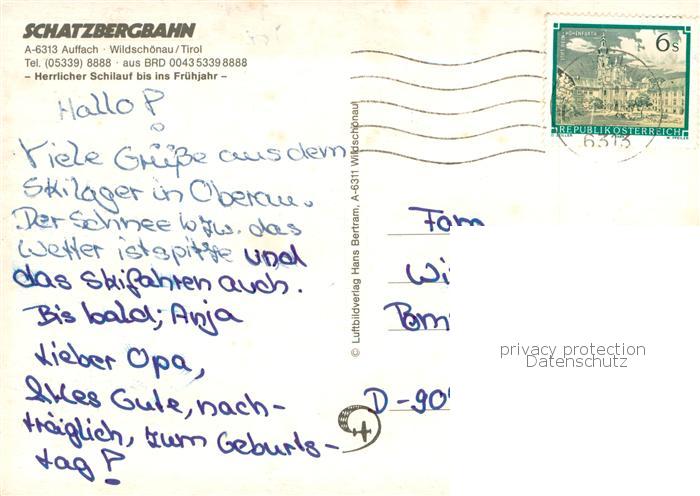 SCHATZBERGBAHN
A-6313 Auffach · Wildschönau/Tirol
Tel. (05339) 8888 · aus BRD 0043 5339 8888
– Herrlicher Schilauf bis ins Frühjahr –
Hallo!
Viele Grüße aus dem
Skilager in Oberau.
Der Schnee bzw. das
Wetter ist spitze und
das Skifahren auch.
Bis bald; Anja
Lieber Opa,
Alles Gute, nach-
träglich, zum Geburts-
tag!
© Luftbildverlag Hans Bertram, A-6311 Wildschönau
6 S
REPUBLIK ÖSTERREICH
6313
Fam
Wi
D-90
privacy protection
Datenschutz